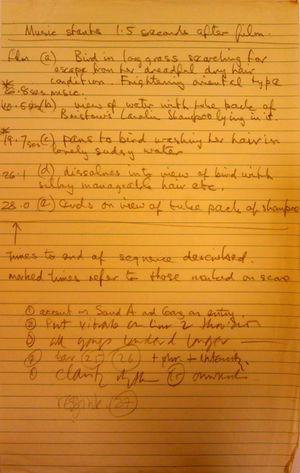 Music starts 1.5 seconds after film.
film (a) Bird in long grass searching for
escape from her dreadful dry hair
condition. Frightening oriental type
music.
(b) view of water with tube pack of
Shampoo lying in it.
19.7sec (c) pans to bird washing her hair in
lonely sudsy water
26.1 (d) dissolves into view of bird with
silky manageable hair etc.
28.0 (e) ends on view of tube pack of shampoo
Times to end of sequence described.
marked times refer to those marked on score
① accent on Sand A and Gong on entry.
② Put vibrato on
③ all gongs louder longer
④ (25) (26) +
⑤ clarity
(27)